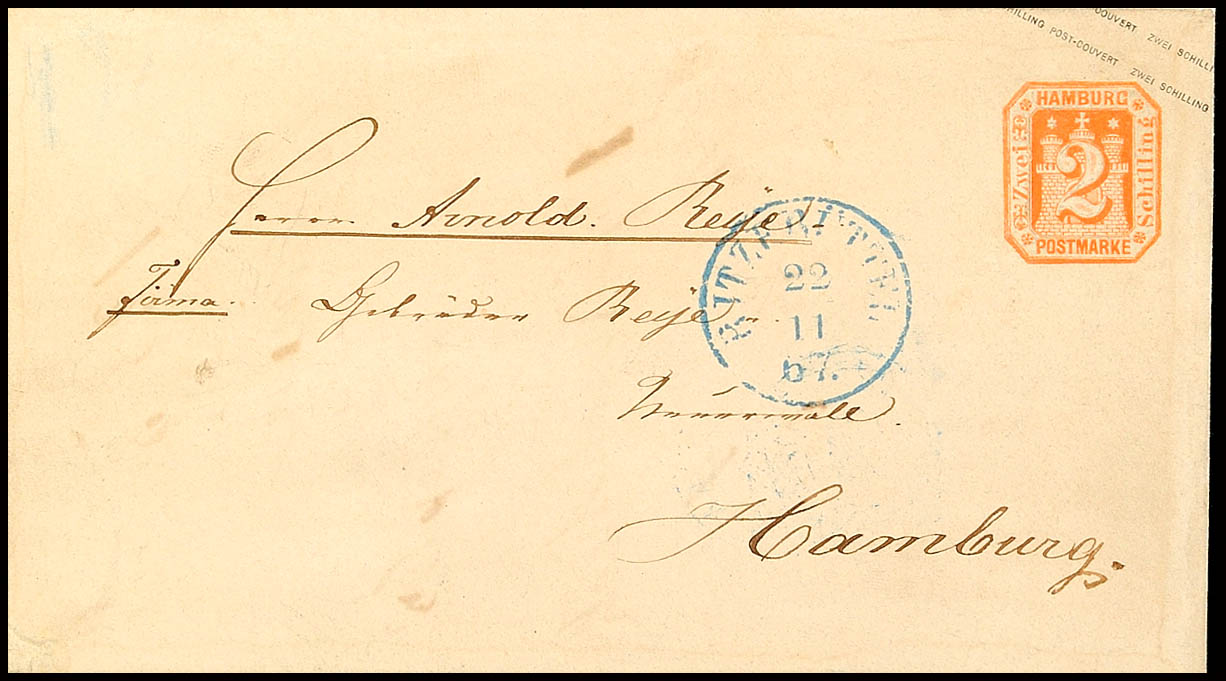 COUVERT ZWEI SCHILLI
SCHILLING POST-COUVERT ZWEI SCHILLING
HAMBURG
Zwei
2
Schilling
POSTMARKE
Herrn Arnold. Reye.
RITZEBÜTTEL
22
11
67.
Firma. Gebrüder Reye
Neuerwall.
Hamburg.